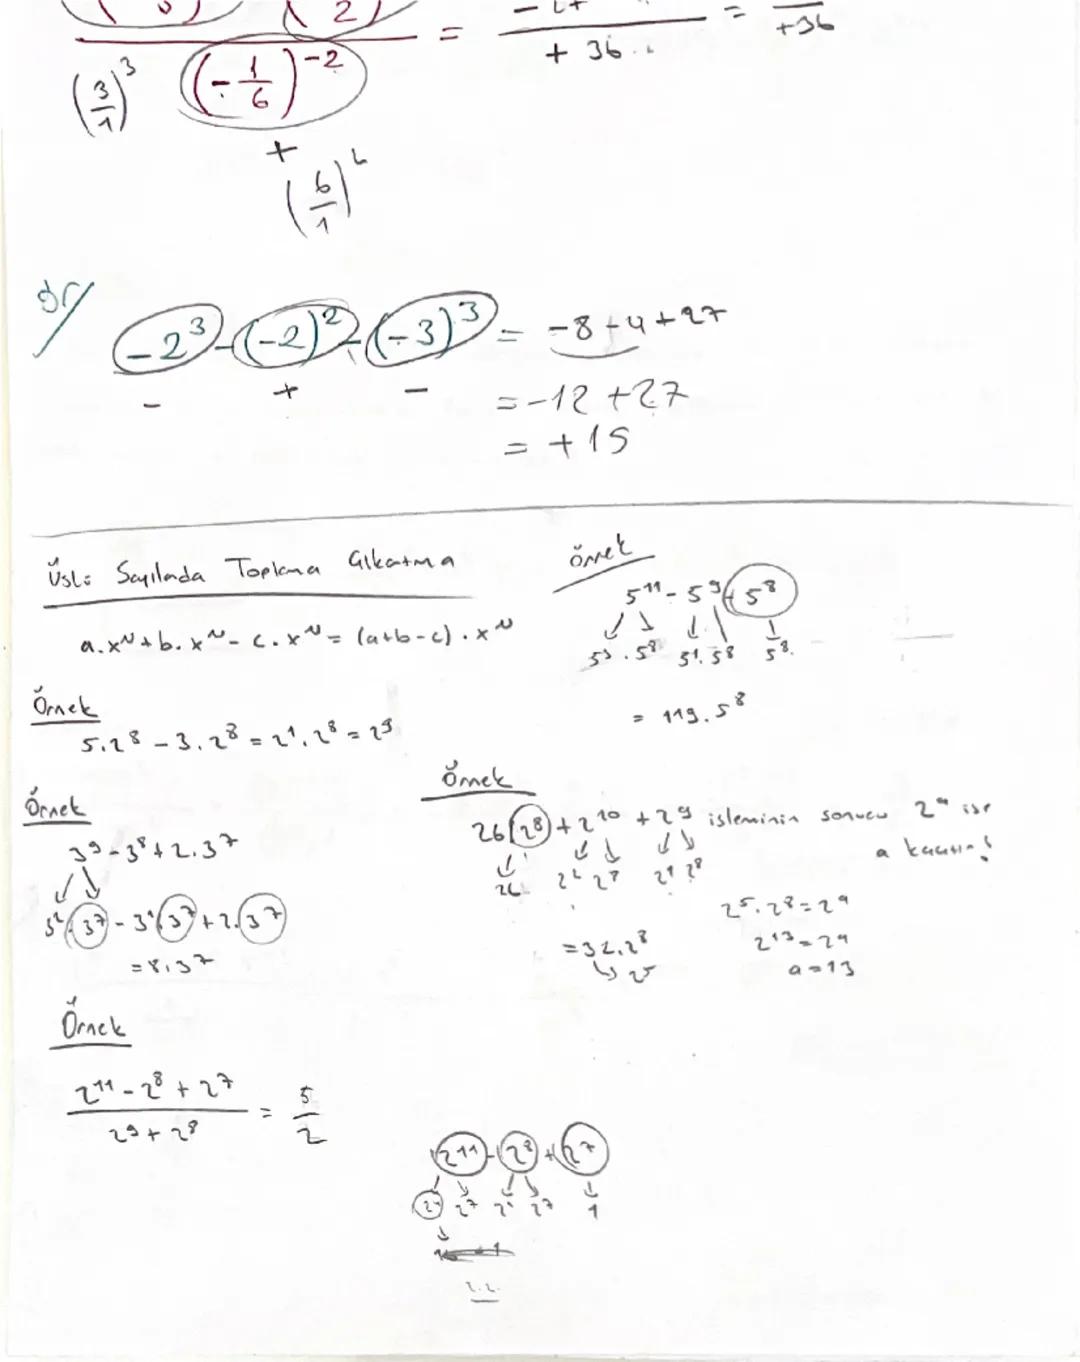 (3/1)³ (-1/6)⁻² = + 36 = +36
+
(6/1)
ör/ -2³-(-2)²-(-3)³ = -8-4+27
- + -
= -12 +27
= +15
Üslü Sayılarda Toplama Çıkartma
a.xᴺ+b.xᴺ- c.xᴺ= (a+b-c).xᴺ
Örnek
5.2⁸ - 3.2⁸ = 2¹.2⁸ = 2⁹
Örnek
3⁹-3⁸+2.3⁷
3².3⁷-3¹.3⁷+2.3⁷
=8.3⁷
Örnek
2¹¹-2⁸+2⁷ / 2⁹+2⁸ = 5/2
örnek
5¹¹-5⁹+5⁸
5³.5⁸ 5¹.5⁸ 5⁸.
= 119.5⁸
Örnek
26.2⁸+2¹⁰+2⁹ işleminin sonucu 2ᵃ ise
a kaçtır?
26 2² 2⁸ 2¹ 2⁸
=32.2⁸
2⁵
2⁵.2⁸=2ᵃ
2¹³=2ᵃ
a=13
2¹¹-2⁸+2⁷
2⁴ 2⁷ 2¹ 2⁷ 1